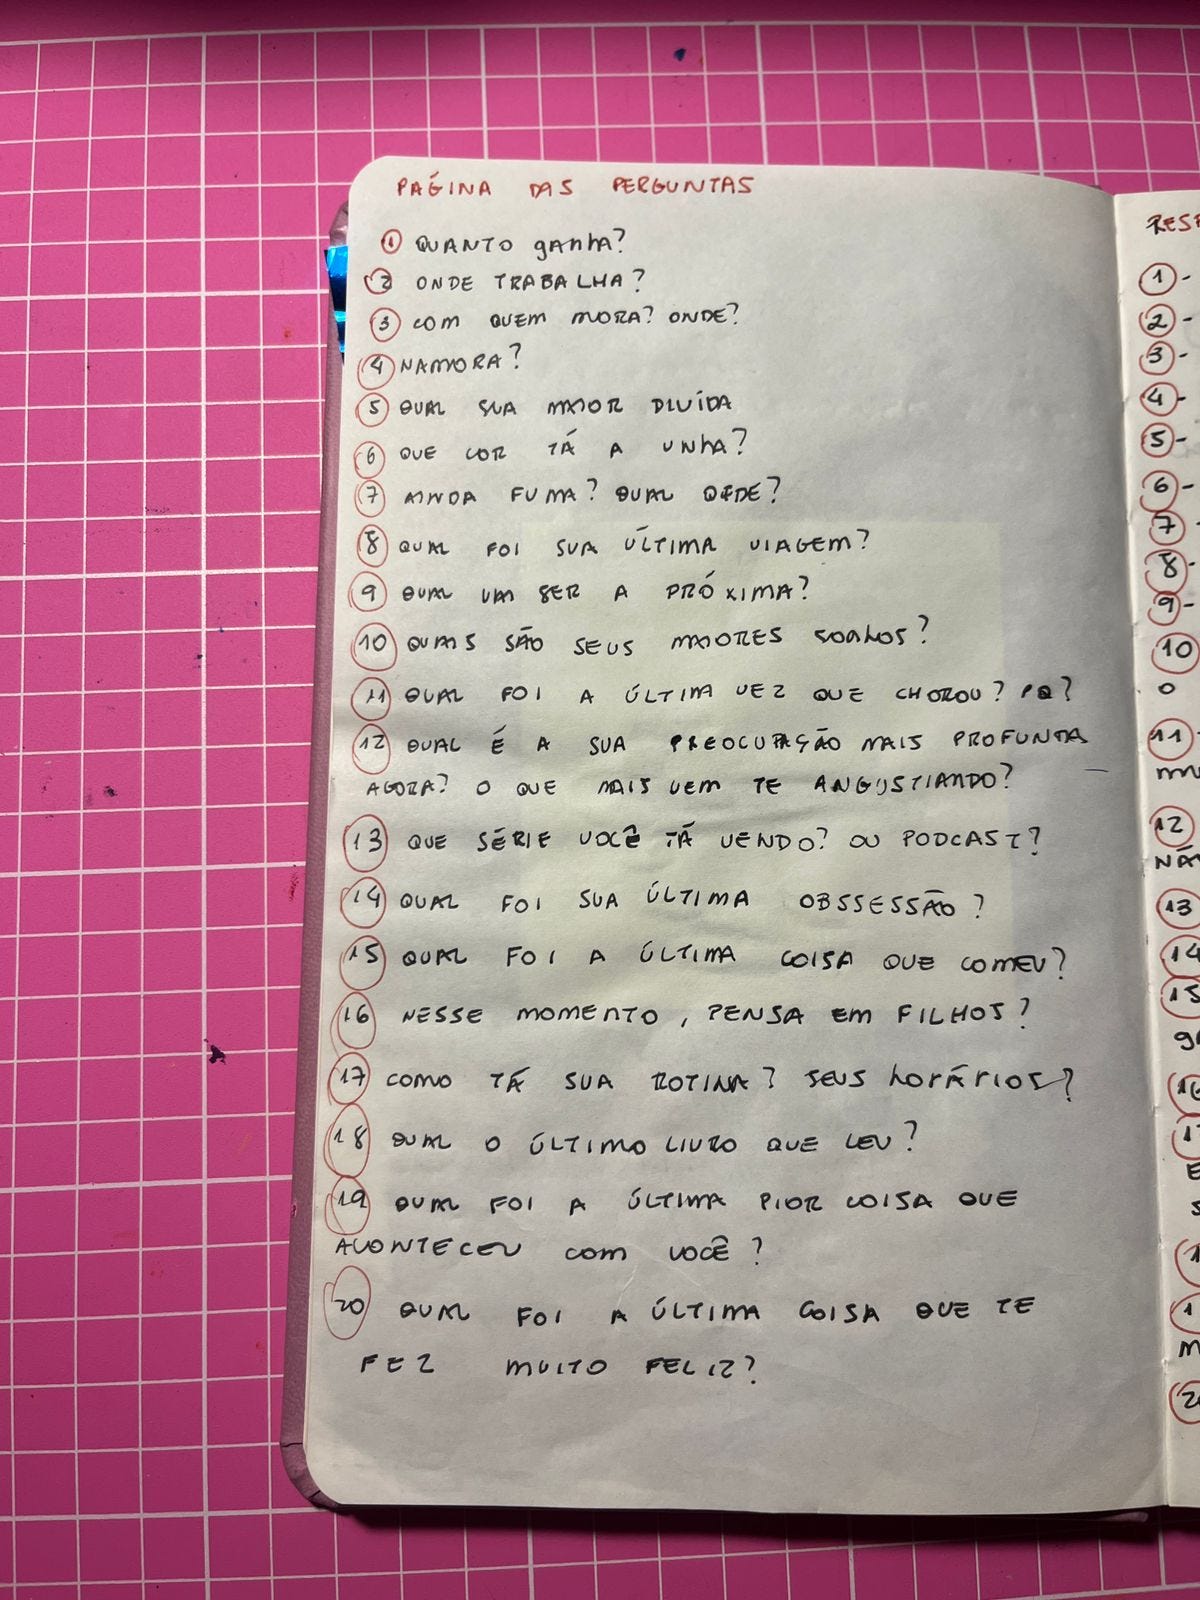 PÁGINA DAS PERGUNTAS
1 QUANTO gANhA?
2 ONDE TRABALHA?
3 COM QUEM MORA? ONDE?
4 NAMORA?
5 QUAL SUA MAIOR DÚVIDA
6 QUE COR TÁ A UNhA?
7 AINDA FUMA? QUAL
8 QUAL FOI SUA ÚLTIMA VIAGEM?
9 QUAL VAI SER A PRÓXIMA?
10 QUAIS SÃO SEUS MAIORES SONhOS?
11 QUAL FOI A ÚLTIMA VEZ QUE CHOROU? PQ?
12 QUAL É A SUA PREOCUPAÇÃO MAIS PROFUNTA
AGORA? O QUE MAIS VEM TE ANGUSTIANDO?
13 QUE SÉRIE VOCÊ TÁ VENDO? OU PODCAST?
14 QUAL FOI SUA ÚLTIMA OBSSESSÃO?
15 QUAL FOI A ÚLTIMA COISA QUE COMEU?
16 NESSE MOMENTO, PENSA EM FILHOS?
17 COMO TÁ SUA ROTINA? SEUS hORÁRIOS?
18 QUAL O ÚLTIMO LIVRO QUE LEU?
19 QUAL FOI A ÚLTIMA PIOR COISA QUE
ACONTECEU COM VOCÊ?
20 QUAL FOI A ÚLTIMA COISA QUE TE
FEZ MUITO FELIZ?
1-
2-
3-
4-
5-
6-
7-
8-
9-
10
O
11
12
13
14
15